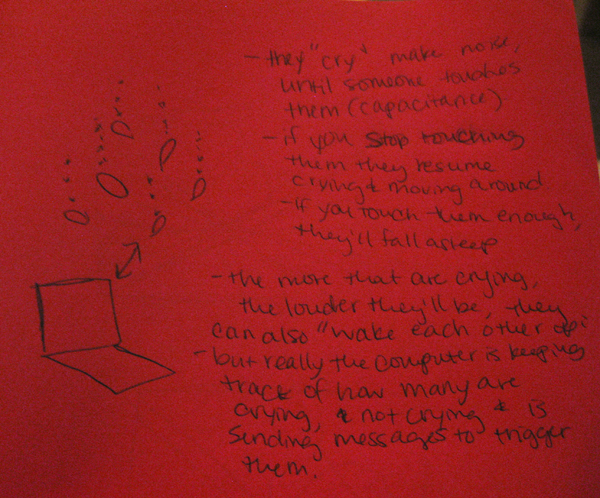 - they "cry" make noise,
until someone touches
them (capacitance)
- if you stop touching
them they resume
crying & moving around
- if you touch them enough,
they'll fall asleep
- the more that are crying,
the louder they'll be, they
can also "wake each other up"
- but really the computer is keeping
track of how many are
crying, & not crying & is
sending messages to trigger
them.